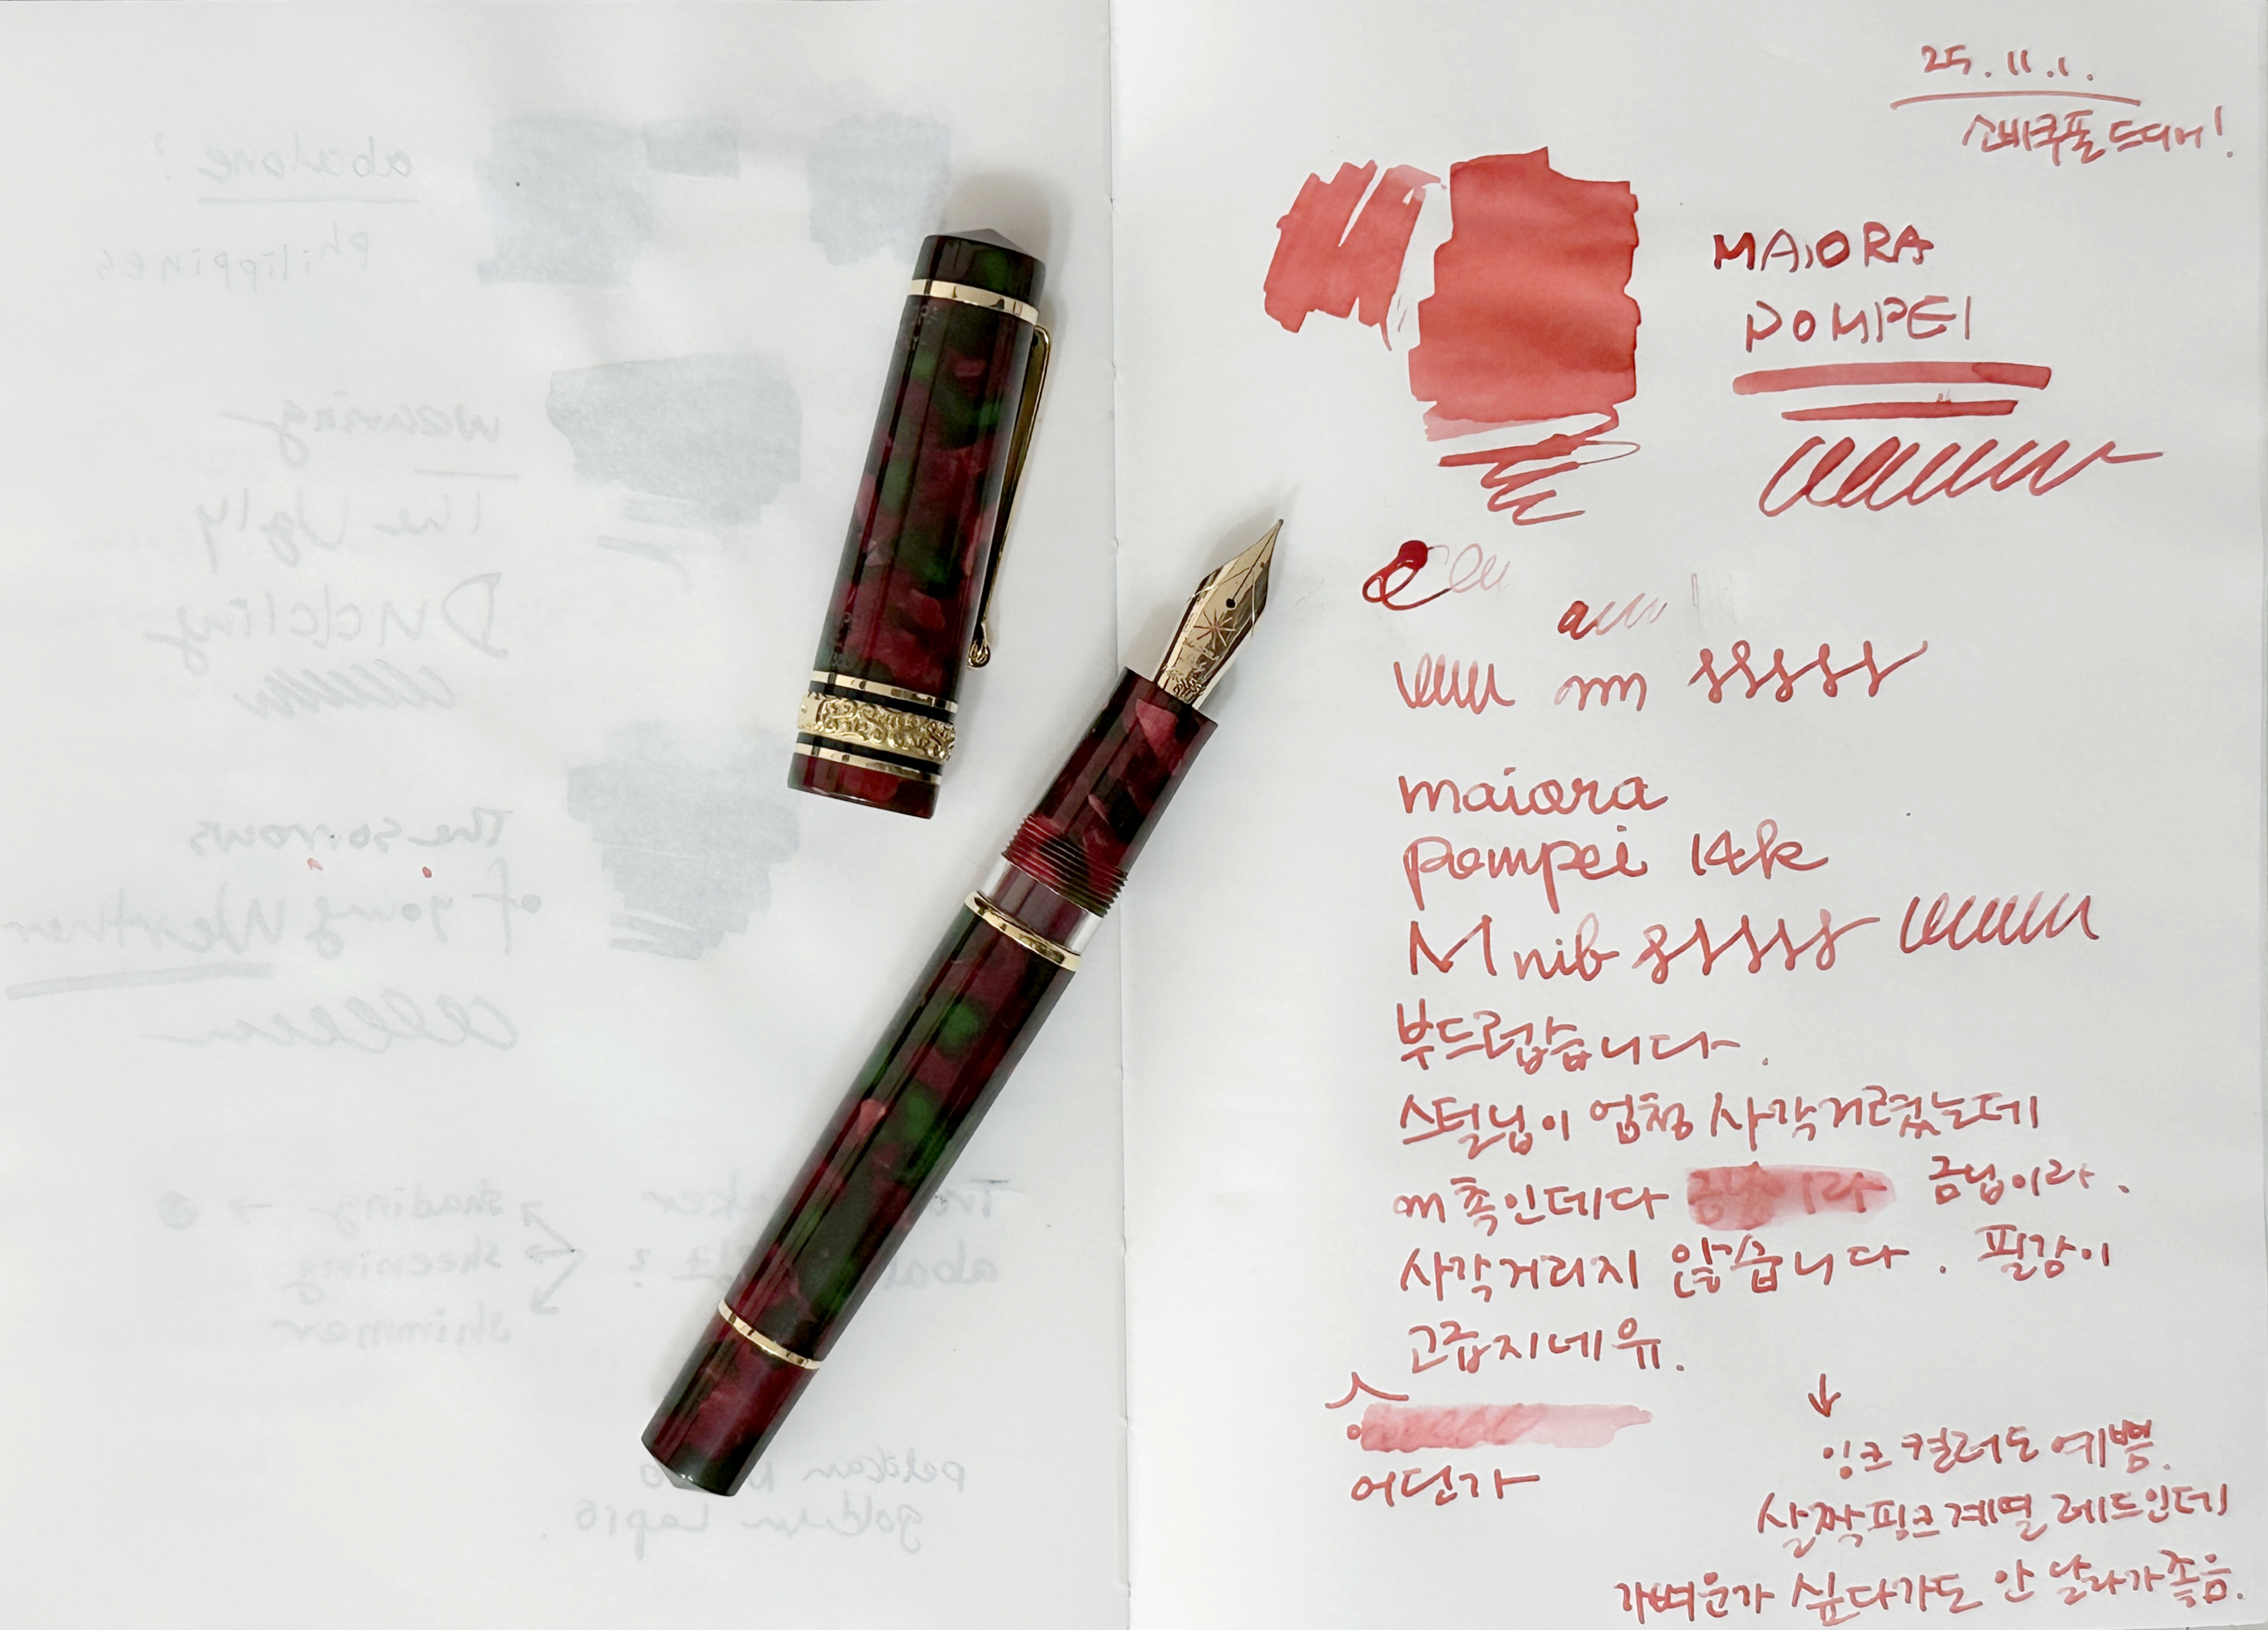 25.11.1.
소바쿠폴 드디어!
MAIORA
POMPEI
maiora
pompei 14k
M nib
부드럽습니다.
스틸닙이 엄청 사각거렸는데
m촉인데다 금닙이라 금닙이라.
사각거리지 않습니다. 필감이
고급지네유.
어딘가
↓
잉크 컬러도 예쁨.
살짝 핑크계열 레드인데
가벼운가 싶다가도 안 날라가 좋음.
abalone?
Philippines
weaving
The Ugly
Duckling
The sorrows
of young Werther
shading →
sheening
shimmer
pelikan
golden Lapis.